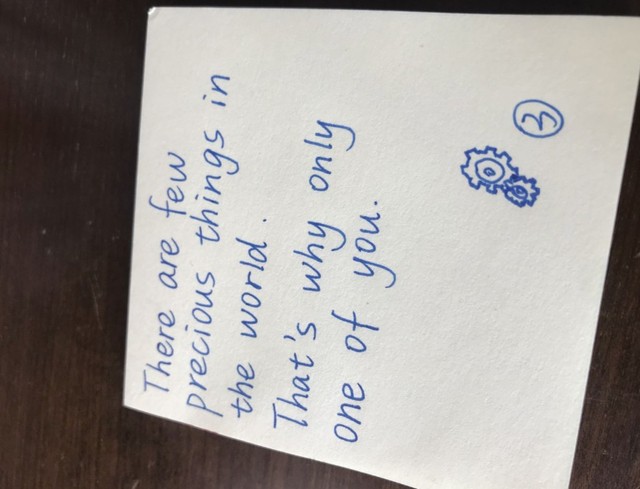 There are few
precious things in
the world.
That's why only
one of you.
3